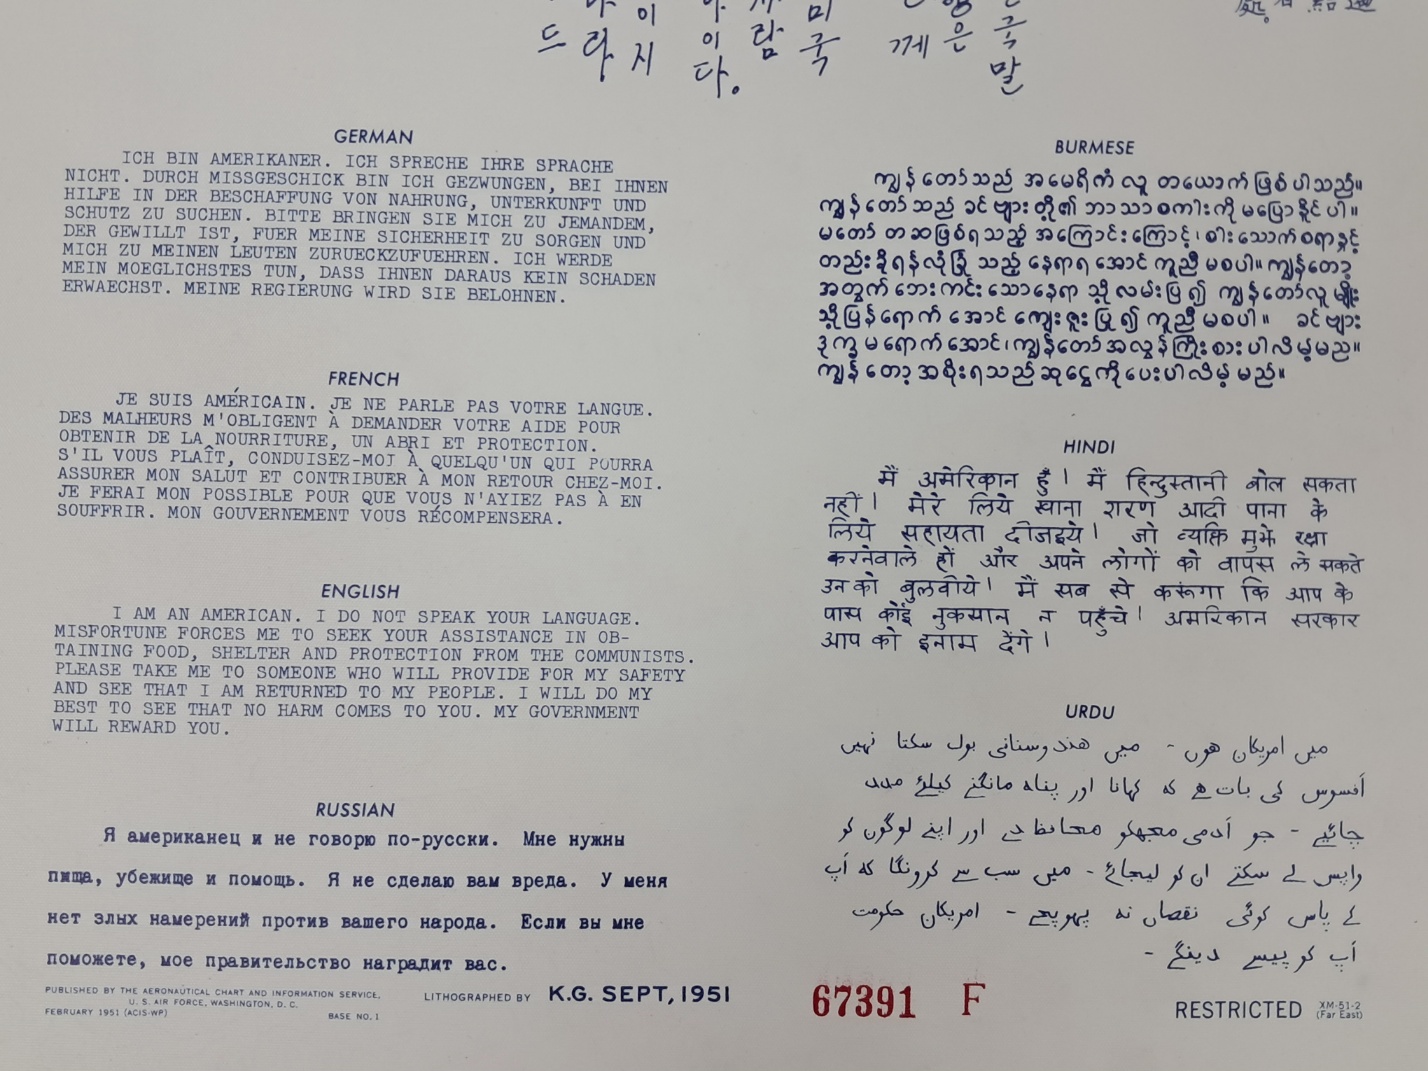 드 라 지 이 다。 람 국 께 은 국 말
GERMAN
ICH BIN AMERIKANER. ICH SPRECHE IHRE SPRACHE
NICHT. DURCH MISSGESCHICK BIN ICH GEZWUNGEN, BEI IHNEN
HILFE IN DER BESCHAFFUNG VON NAHRUNG, UNTERKUNFT UND
SCHUTZ ZU SUCHEN. BITTE BRINGEN SIE MICH ZU JEMANDEM,
DER GEWILLT IST, FUER MEINE SICHERHEIT ZU SORGEN UND
MICH ZU MEINEN LEUTEN ZURUECKZUFUEHREN. ICH WERDE
MEIN MOEGLICHSTES TUN, DASS IHNEN DARAUS KEIN SCHADEN
ERWAECHST. MEINE REGIERUNG WIRD SIE BELOHNEN.
FRENCH
JE SUIS AMÉRICAIN. JE NE PARLE PAS VOTRE LANGUE.
DES MALHEURS M'OBLIGENT À DEMANDER VOTRE AIDE POUR
OBTENIR DE LA NOURRITURE, UN ABRI ET PROTECTION.
S'IL VOUS PLAÎT, CONDUISEZ-MOI À QUELQU'UN QUI POURRA
ASSURER MON SALUT ET CONTRIBUER À MON RETOUR CHEZ-MOI.
JE FERAI MON POSSIBLE POUR QUE VOUS N'AYIEZ PAS À EN
SOUFFRIR. MON GOUVERNEMENT VOUS RÉCOMPENSERA.
ENGLISH
I AM AN AMERICAN. I DO NOT SPEAK YOUR LANGUAGE.
MISFORTUNE FORCES ME TO SEEK YOUR ASSISTANCE IN OB-
TAINING FOOD, SHELTER AND PROTECTION FROM THE COMMUNISTS.
PLEASE TAKE ME TO SOMEONE WHO WILL PROVIDE FOR MY SAFETY
AND SEE THAT I AM RETURNED TO MY PEOPLE. I WILL DO MY
BEST TO SEE THAT NO HARM COMES TO YOU. MY GOVERNMENT
WILL REWARD YOU.
RUSSIAN
Я американец и не говорю по-русски. Мне нужны
пища, убежище и помощь. Я не сделаю вам вреда. У меня
нет злых намерений против вашего народа. Если вы мне
поможете, мое правительство наградит вас.
BURMESE
ကျွန်တော်သည် အမေရိကံ လူ တယောက် ဖြစ်ပါသည်။
ကျွန်တော်သည် ခင်ဗျားတို့၏ ဘာသာစကားကို မပြောနိုင်ပါ။
မတော်တဆဖြစ်ရသည့် အကြောင်းကြောင့်၊ စားသောက်စရာနှင့်
တည်းခိုရန်လုံခြုံသည့် နေရာရအောင် ကူညီမစပါ။ ကျွန်တော့်
အတွက် ဘေးကင်းသောနေရာသို့ လမ်းပြ၍ ကျွန်တော်လူမျိုး
သို့ပြန်ရောက်အောင် ကျေးဇူးပြု၍ ကူညီမစပါ။ ခင်ဗျား
ဒုက္ခမရောက်အောင်၊ ကျွန်တော်အလွန်ကြိုးစားပါလိမ့်မည်။
ကျွန်တော့အစိုးရသည် ဆုငွေကိုပေးပါလိမ့်မည်။
HINDI
मैं अमेरिकान हूँ। मैं हिन्दुस्तानी बोल सकता
नहीं। मेरे लिये खाना शरण आदी पाना के
लिये सहायता दीजइये। जो व्यक्ति मुझे रक्षा
करनेवाले हों और अपने लोगों को वापस ले सकते
उनको बुलवीये। मैं सब से करूंगा कि आप के
पास कोई नुकसान न पहुँचे। अमरिकान सरकार
आप को इनाम देंगे।
URDU
میں امریکان ھوں - میں ھندوستانی بول سکتا نہیں
افسوس کی بات ھے کہ کھانا اور پناہ مانگنے کیلئے مدد
چائیے - جو آدمی مجھکو محافظ دے اور اپنے لوگوں کو
واپس لے سکتے ان کو لیجائے - میں سب سے کرونگا کہ آپ
کے پاس کوئی نقصان نہ پہوپچے - امریکان حکومت
آپ کو پیسے دینگے -
PUBLISHED BY THE AERONAUTICAL CHART AND INFORMATION SERVICE,
U. S. AIR FORCE, WASHINGTON, D. C.
FEBRUARY 1951 (ACIS-WP) BASE NO. 1
LITHOGRAPHED BY K.G. SEPT, 1951
67391 F
RESTRICTED XM-51-2
(Far East)